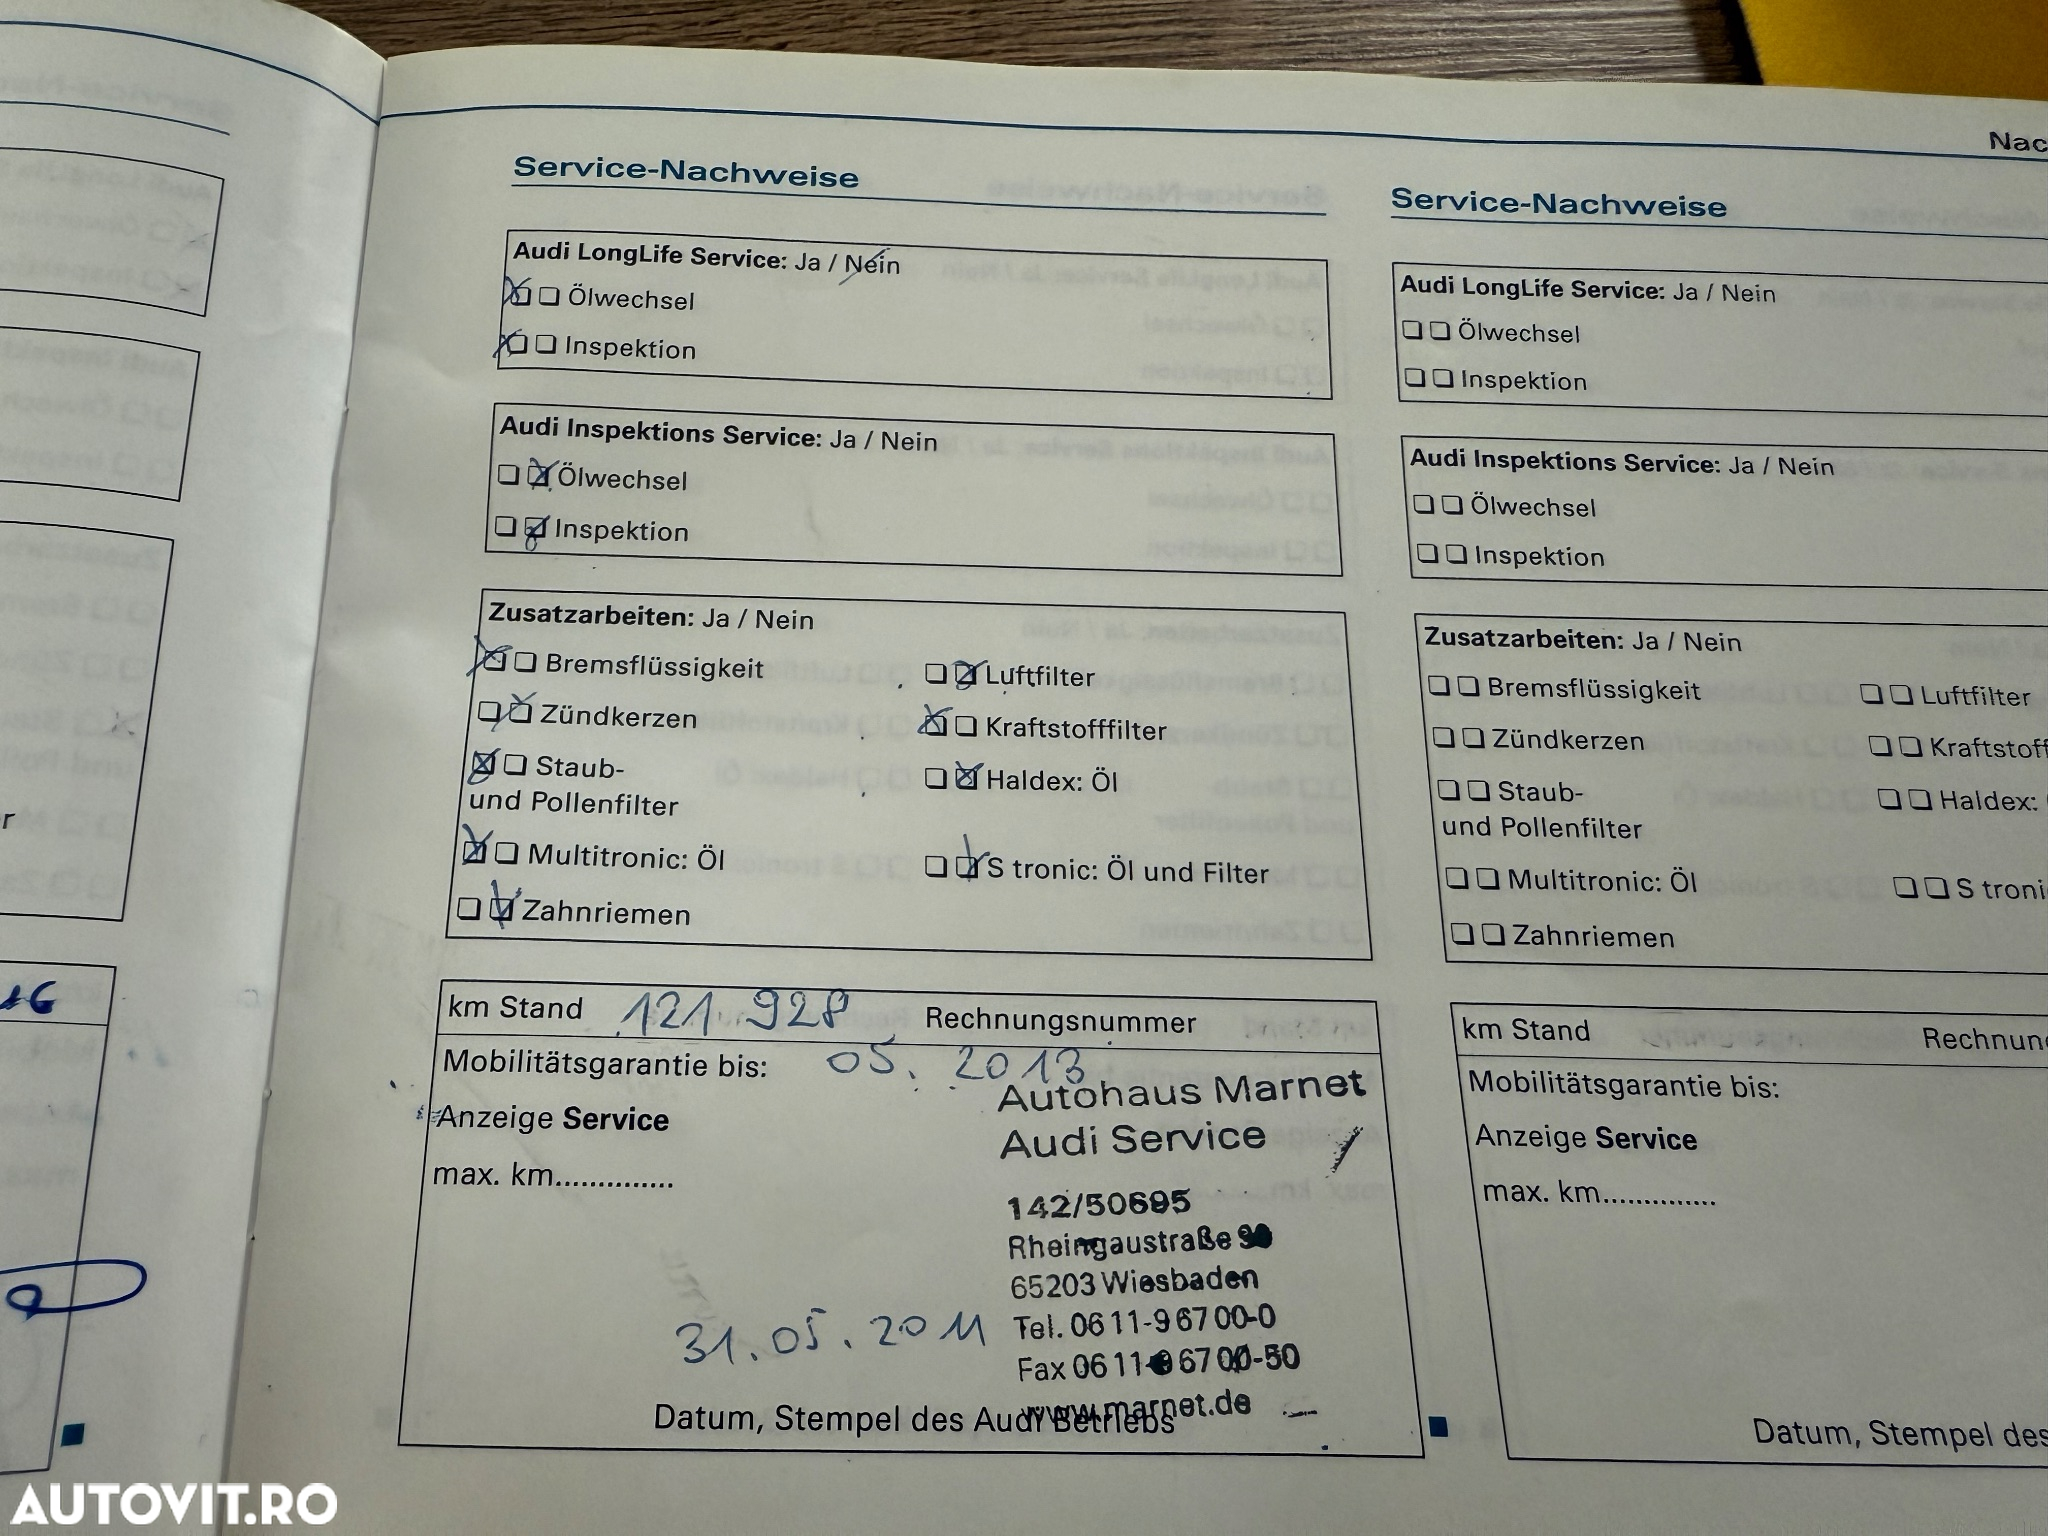 Nac
Service-Nachweise
Audi LongLife Service: Ja / Nein
Ölwechsel
Inspektion
Audi Inspektions Service: Ja / Nein
Ölwechsel
Inspektion
Zusatzarbeiten: Ja / Nein
Bremsflüssigkeit
Luftfilter
Zündkerzen
Kraftstofffilter
Staub-
und Pollenfilter
Haldex: Öl
Multitronic: Öl
S tronic: Öl und Filter
Zahnriemen
km Stand 121.928 Rechnungsnummer
Mobilitätsgarantie bis: 05.2013
Anzeige Service
max. km..............
Autohaus Marnet
Audi Service
142/50695
Rheingaustraße
65203 Wiesbaden
Tel. 06 11-9 67 00-0
Fax 06 11-9 67 00-50
www.marnet.de
31.05.2011
Datum, Stempel des Audi Betriebs
Service-Nachweise
Audi LongLife Service: Ja / Nein
Ölwechsel
Inspektion
Audi Inspektions Service: Ja / Nein
Ölwechsel
Inspektion
Zusatzarbeiten: Ja / Nein
Bremsflüssigkeit
Luftfilter
Zündkerzen
Kraftstoff
Staub-
und Pollenfilter
Haldex:
Multitronic: Öl
S troni
Zahnriemen
km Stand
Rechnun
Mobilitätsgarantie bis:
Anzeige Service
max. km..............
Datum, Stempel des
r
16
AUTOVIT.RO